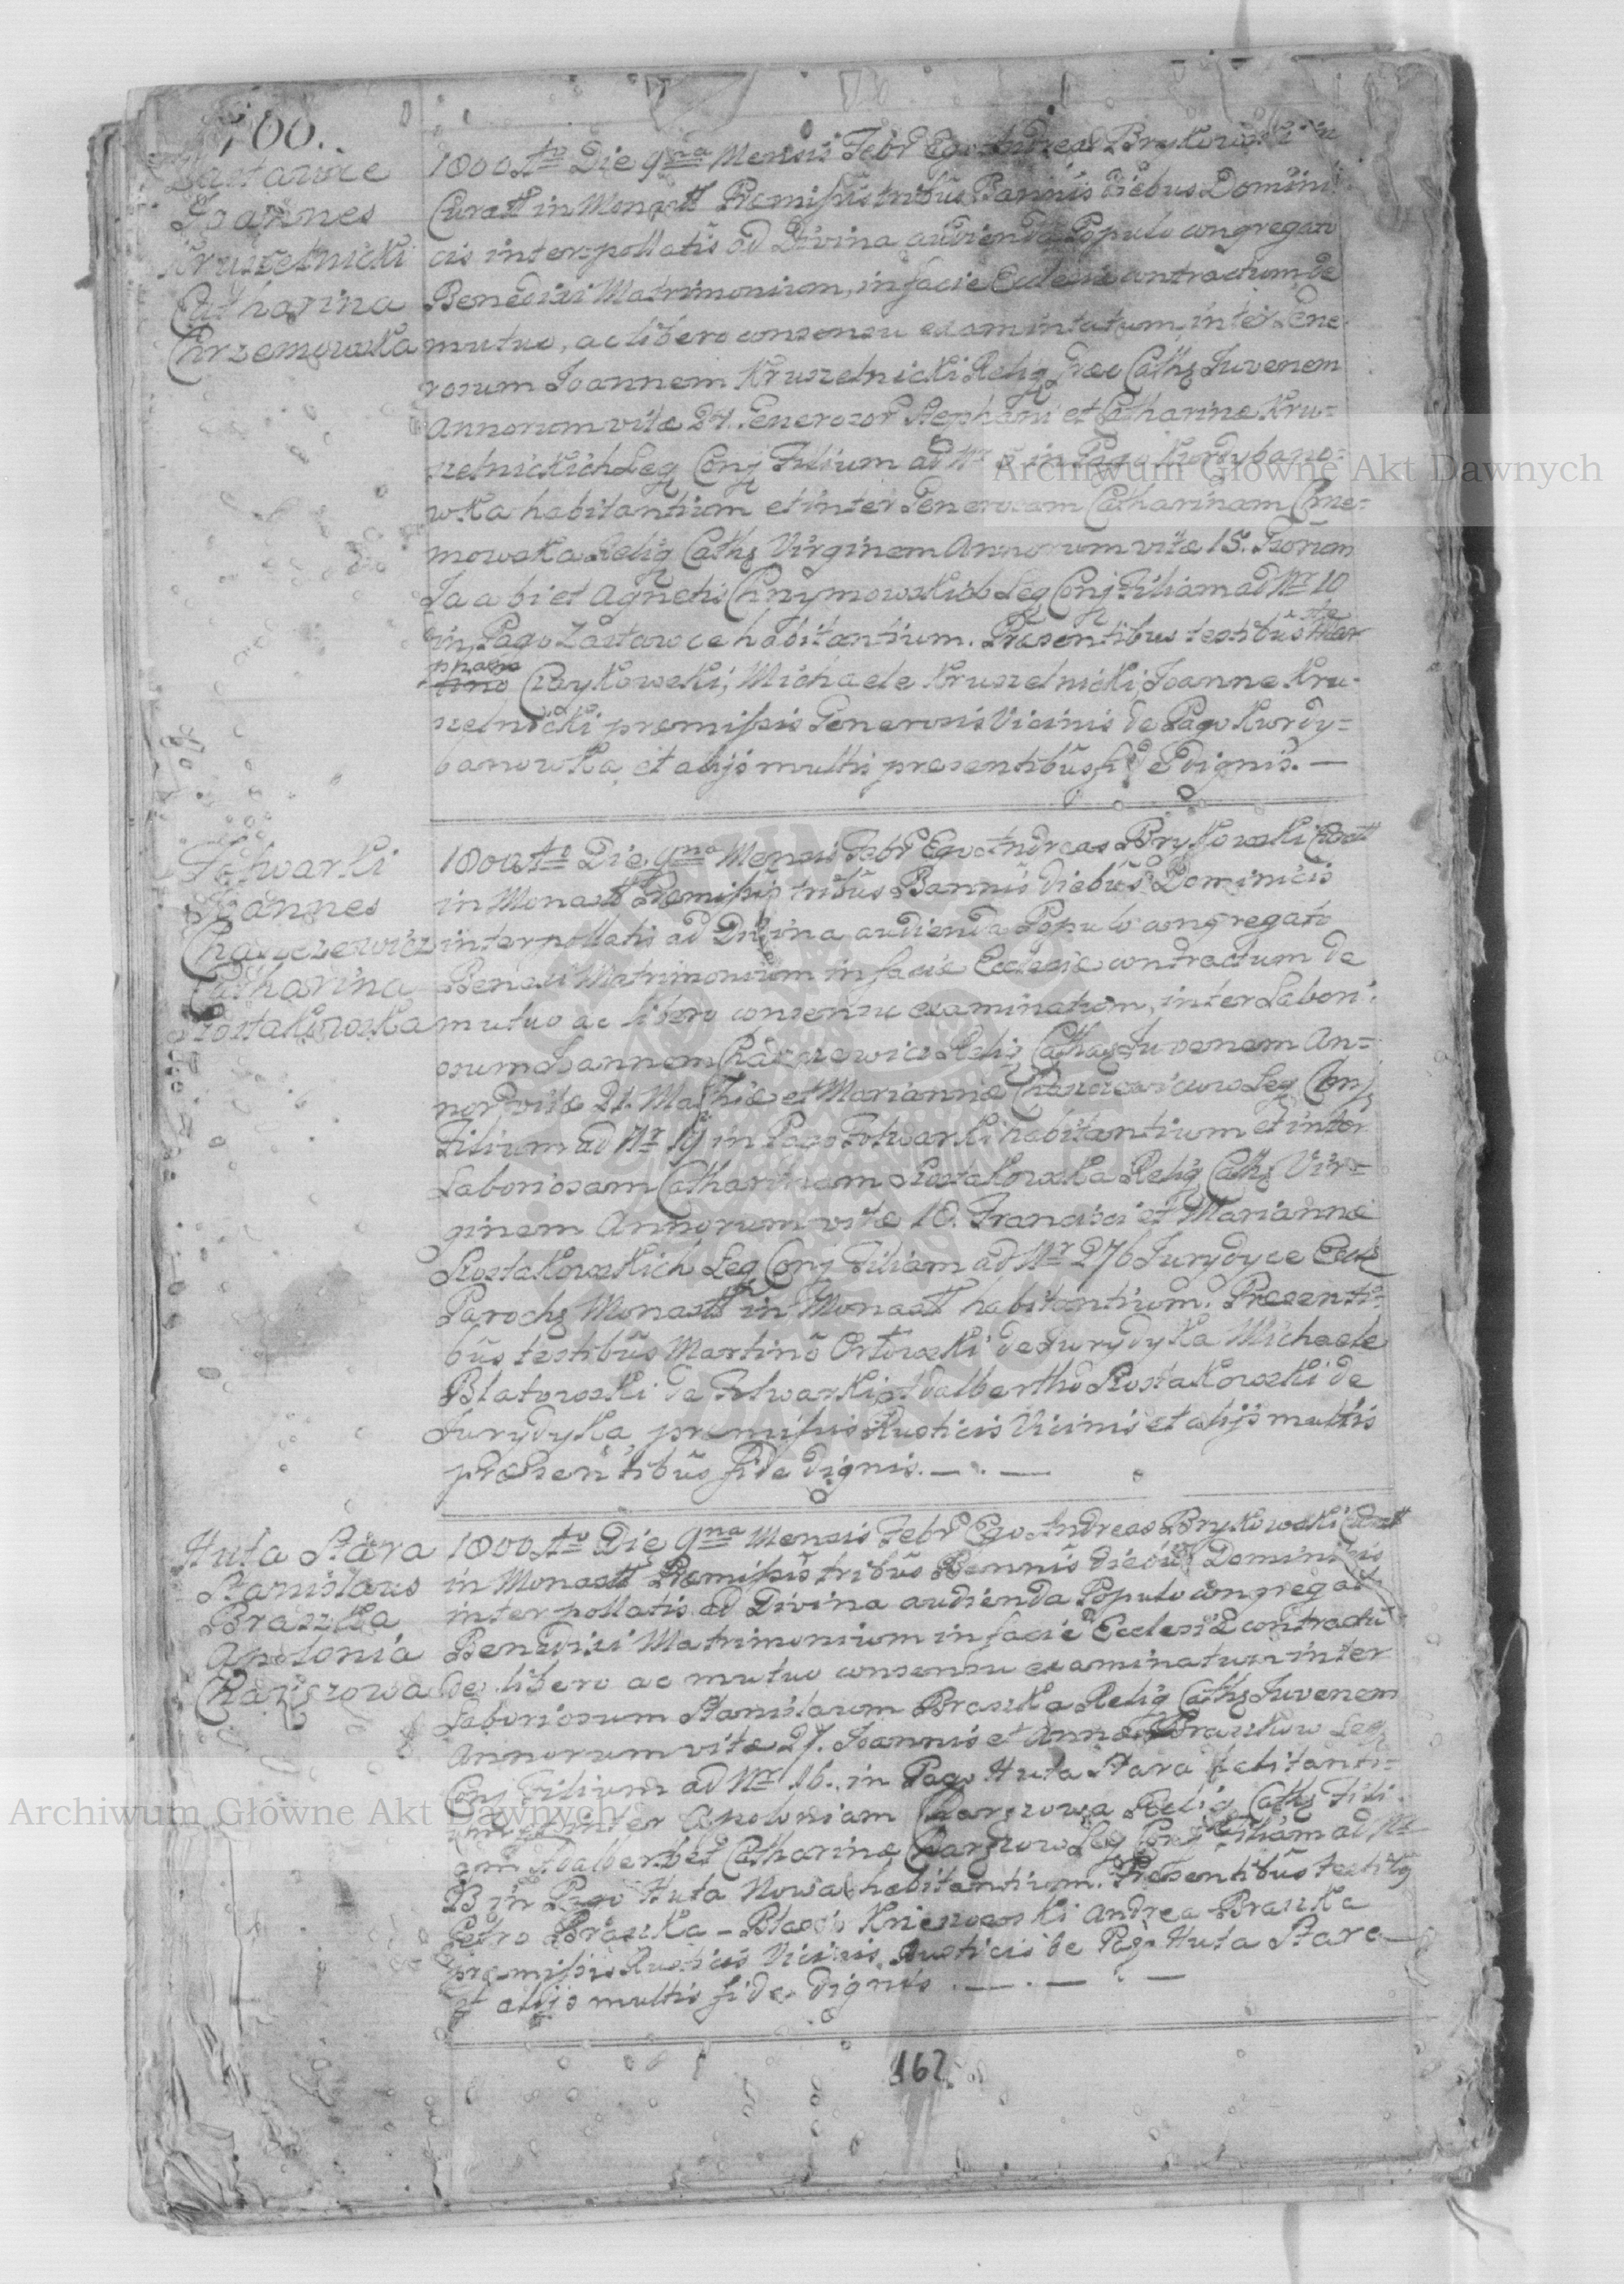 100.
Zastawce
Joannes
Kruszelnicki
Catharina
Chrzemowska
1800 Ao Die 9na Mensis Febr Ego Andreas Brykowski
Curatt in Monastt Præmissis tribus Bannis diebus Domini
cis interpollatis ad Divina audienda Populo congregato
Benedixi Matrimonium, in facie Ecclesiæ contractum, de
mutuo, ac libero consensu examinatum, inter Gene
rosum Joannem Kruszelnicki Relig Græo Cathz Juvenem
Annorum vitæ 24. Generosor Stephani et Catharinæ Kru=
szelnickich Leg Conj Filium ad Nr in Pago Kurdybano=
wka habitantium et inter Generosam Catharinam Chrze=
mowska Relig Cathz Virginem Annorum vitæ 15.
Jacobi et Agnetis Chrzymowskich Leg Conj Filiam ad Nr 10
in Pago Zastawce habitantium. Præsentibus testibus Ste Mar
phano tino Czaykowski, Michaele Kruszelnicki, Joanne Kru-
szelnicki præmissis Generosis Vicinis de Pago Kurdy=
banowka et alijs multis presentibus fide dignis. —
Folwarki
Joannes
Charzewicz
Catharina
Rostakowska
1800 Ao Die 9na Mensis Febr Ego Andreas Brykowski Curatt
in Monastt Præmissis tribus Bannis diebus Dominicis
interpollatis ad Divina audienda Populo congregato
Benexi Matrimonium in facie Ecclesiæ contractum de
mutuo ac libero consensu examinatum, inter Labori
osum Joannem Relig Cathz Juvenem An=
nor vitæ 21. Mathiæ et Mariannæ Leg Conj
Filium ad Nr 19 in Pago Folwarki habitantium et inter
Laboriosam Catharinam Rostakowska Relig Cathz Vir=
ginem Annorum vitæ 18. Francisci et Mariannæ
Rostakowskich Leg Conj Filiam ad Nr 276 Jurydyce
Parochz Monastt in Monastt habitantium. Præsenti=
bus testibus Martino Orłowski de Jurydyka Michaele
Blatowski de Folwarki Adalbertho Rostakowski de
Jurydyka præmissis Rusticis Vicinis et alijs multis
præsentibus fide dignis. — . —
Huta Stara
Stanislaus
Braszka
Apolonia
Chargzowa
1800 Ao Die 9na Mensis Febr Ego Andreas Brykowski Curatt
in Monastt Præmissis tribus Bennis diebus Dominicis
interpollatis ad Divina audienda Populo congregat
Benedixi Matrimonium in facie Ecclesiæ contractu
de libero ac mutuo consensu examinatum inter
Laboriosum Stanislaum Braszka Relig Cathz Juvenem
Annorum vitæ 27. Joannis et Annæ Braszkow Leg
Conj Filium ad Nr 16. in Pago Huta Stara habitanti=
um et inter Apoloniam Chargzowa Relig Cathz Fili
am Adalberti et Catharinæ Chargzow Leg Conj Filiam ad Nr
23 in Pago Huta Nowa habitantium. Præsentibus testibz
Petro Braszka — Blasio Andrea Braszka
præmissis Rusticis Vicinis Rusticis de Pago Huta Stara
et alijs multis fide dignis . — . — . —
162
Archiwum Główne Akt Dawnych
Archiwum Główne Akt Dawnych